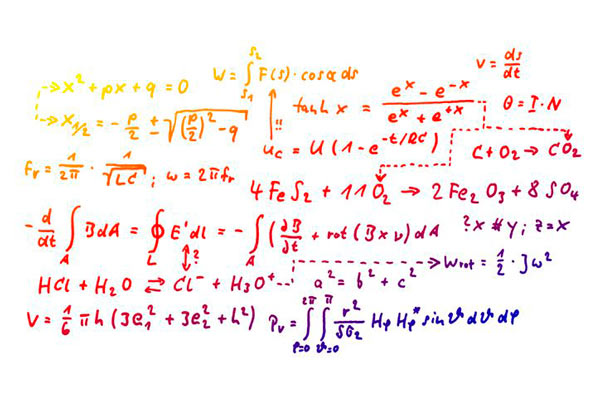 x² + px + q = 0
W = ∫_{s₁}^{s₂} F(s) · cos α ds
v = ds/dt
x_{1/2} = - p/2 ± √((p/2)² - q)
tanh x = (e^x - e^{-x})/(e^x + e^{+x})
Θ = I · N
!!
u_C = U (1 - e^{-t/RC})
C + O₂ → CO₂
f_r = 1/2π · 1/√LC ; ω = 2πf_r
4 FeS₂ + 11 O₂ → 2 Fe₂O₃ + 8 SO₄
- d/dt ∫_A B dA = ∮_L E' dl = - ∫_A (∂B/∂t + rot (B × v) dA
? x # y ; z = x
?
HCl + H₂O ⇄ Cl⁻ + H₃O⁺
a² = b² + c²
W_rot = 1/2 · J ω²
V = 1/6 π h (3e₁² + 3e₂² + h²)
P_v = ∫_{φ=0}^{2π} ∫_{ϑ=0}^{π} r²/ Hφ Hφ* sin ϑ dϑ dφ